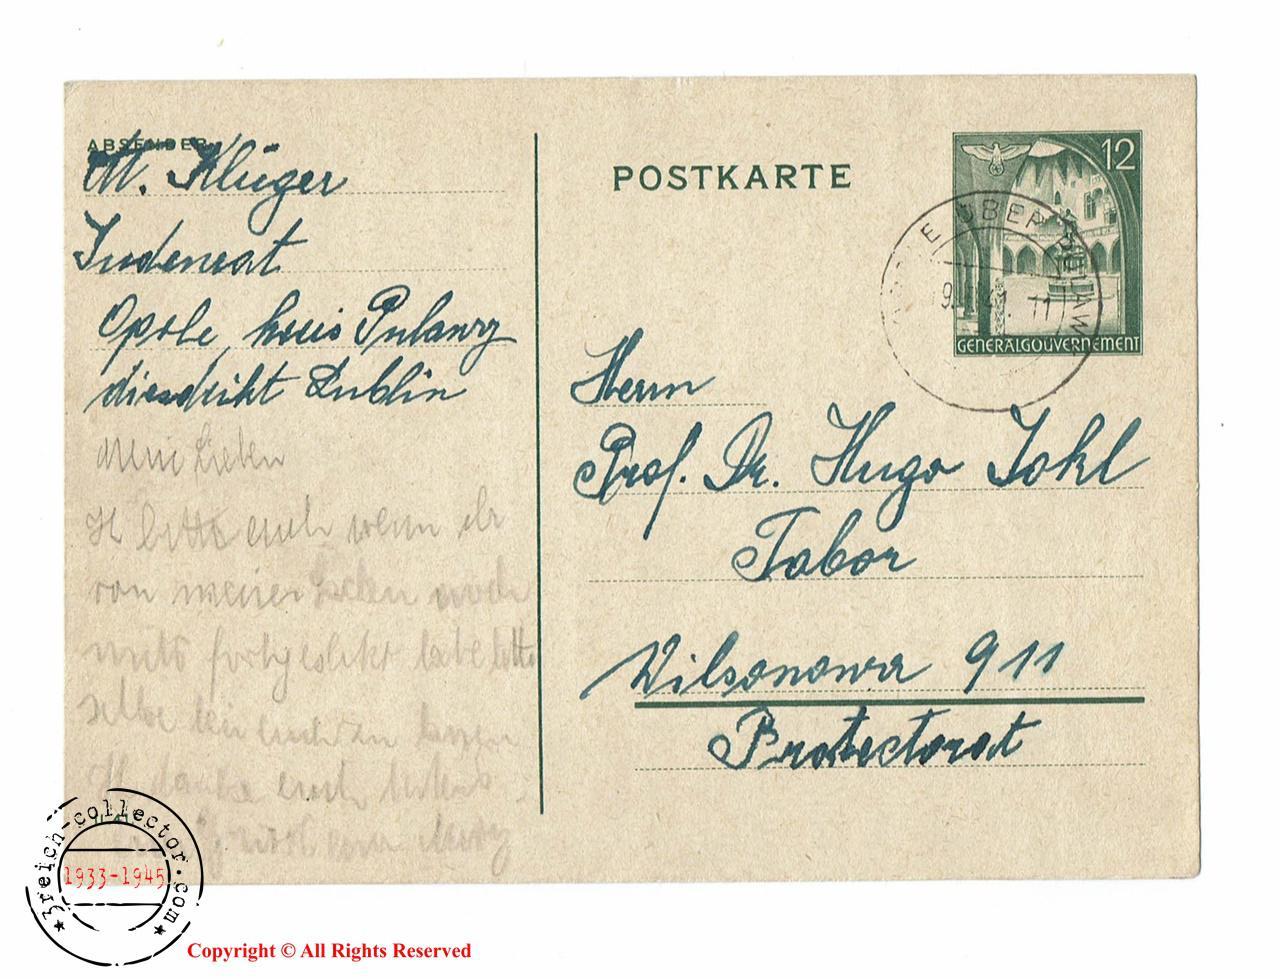 ABSENDER
M. Klüger
Judenrat
Opole, kreis Pulawy
diesdrikt Lublin
meine Lieben
H bitte euch wenn ihr
von meinen Sachen noch
nicht fortgeschikt habt bitte
selbe bei euch zu lassen
H danke euch
POSTKARTE
12
GENERALGOUVERNEMENT
E ÜBER PULAWY
41. 11
Herrn
Prof. Dr. Hugo Jokl
Tabor
Wilsonowa 911
Protectorat
3reich-collector.com
1933-1945
Copyright © All Rights Reserved